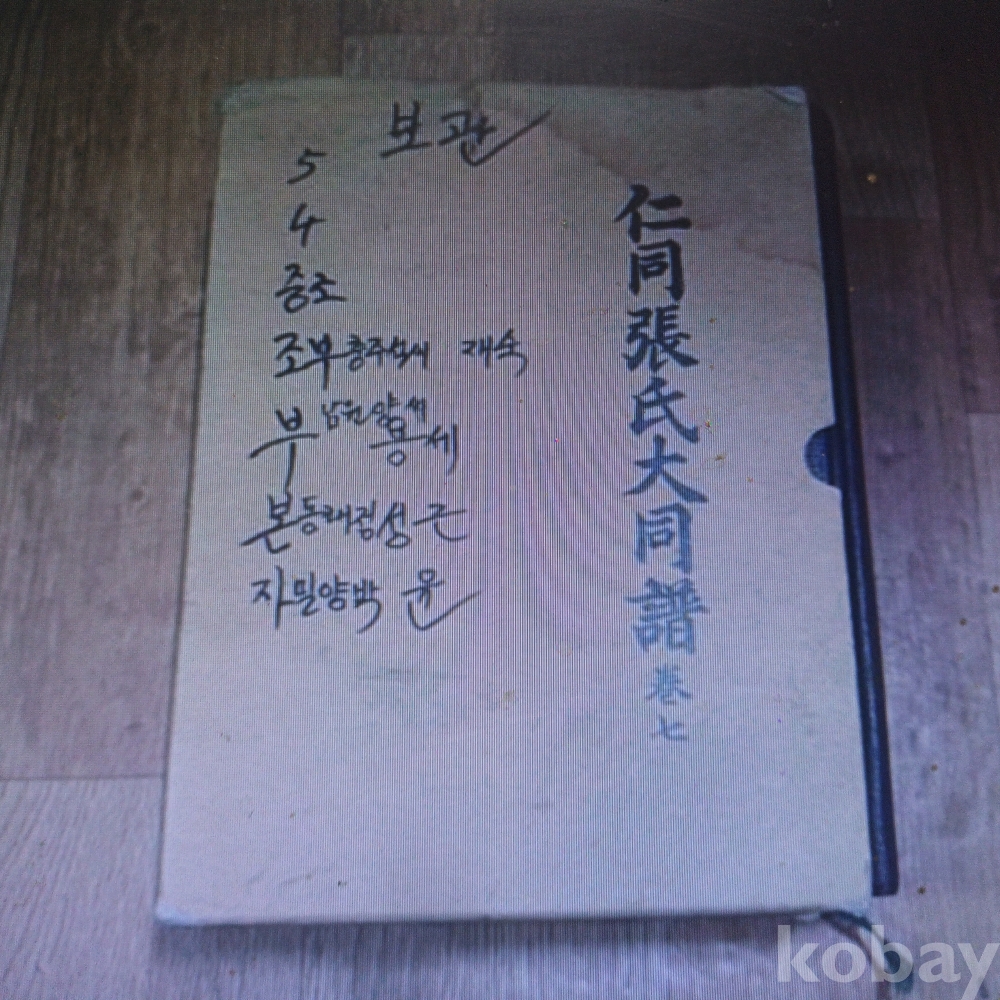 보관
5
4
증조
조부 충주석씨 재숙
부 남원양씨
용세
본동래정성근
자밀양박 윤
仁同張氏大同譜 卷七
kobay